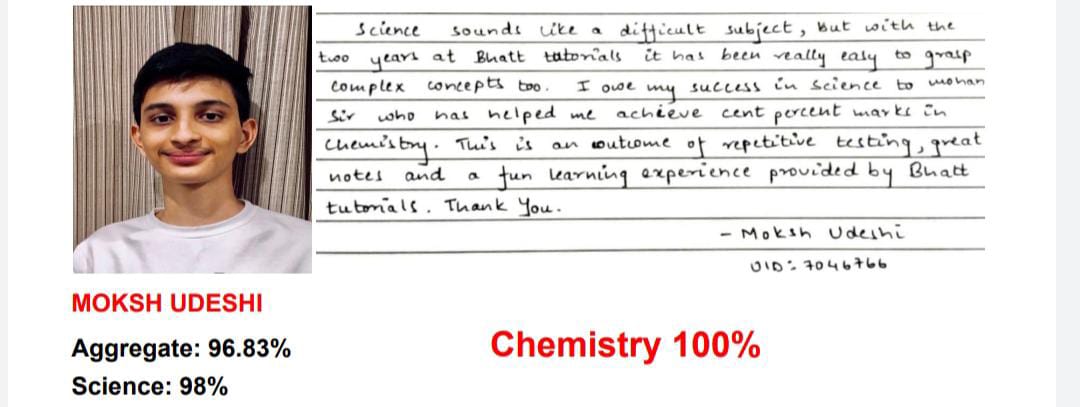 Science sounds like a difficult subject, but with the
two years at Bhatt tutorials it has been really easy to grasp
complex concepts too. I owe my success in science to mohan
Sir who has helped me achieve cent percent marks in
chemistry. This is an outcome of repetitive testing, great
notes and a fun learning experience provided by Bhatt
tutorials. Thank You.
- Moksh Udeshi
UID: 7046766
MOKSH UDESHI
Aggregate: 96.83%
Science: 98%
Chemistry 100%